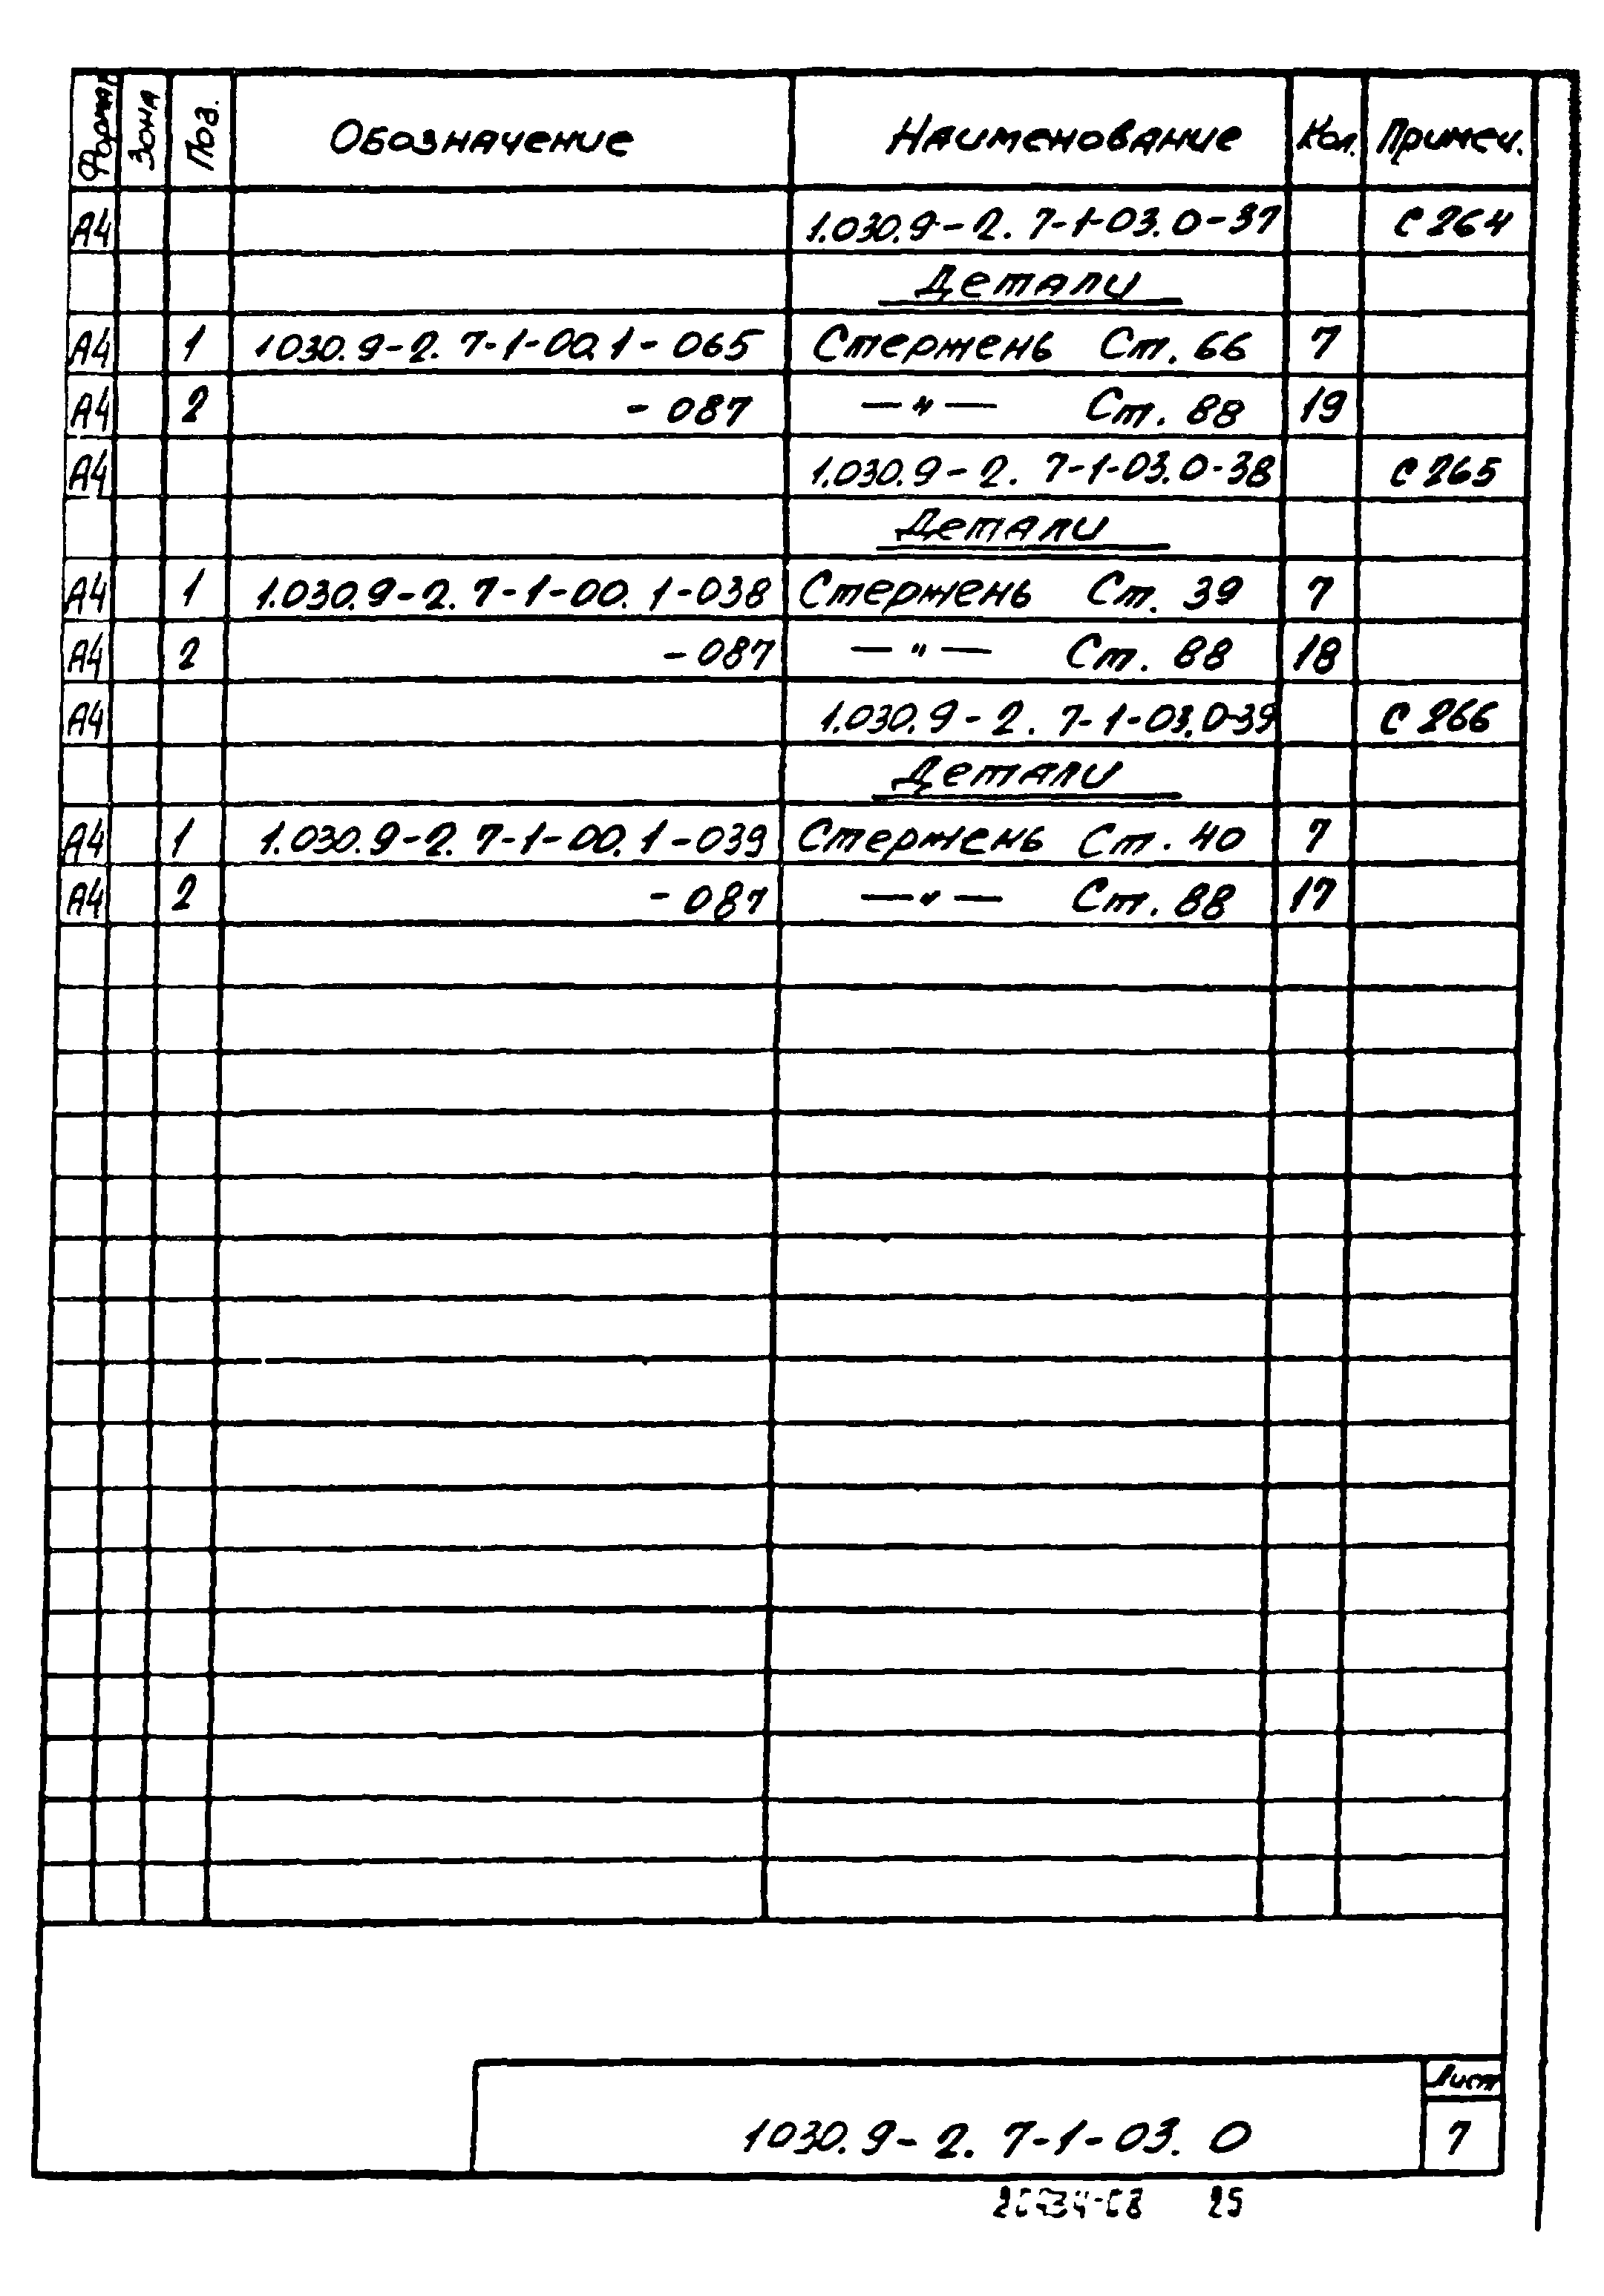 Формат Зона Поз. Обозначение Наименование Кол. Примеч.
А4 1.030.9-2. 7-1-03.0-37 С 264
Детали
А4 1 1030.9-2. 7-1-00.1-065 Стержень Ст. 66 7
А4 2 -087 —"— Ст. 88 19
А4 1.030.9-2. 7-1-03.0-38 С 265
Детали
А4 1 1.030.9-2. 7-1-00.1-038 Стержень Ст. 39 7
А4 2 -087 —"— Ст. 88 18
А4 1.030.9-2. 7-1-03.0-39 С 266
Детали
А4 1 1.030.9-2. 7-1-00.1-039 Стержень Ст. 40 7
А4 2 -087 —"— Ст. 88 17
Лист
1030.9-2. 7-1-03. 0 7
25